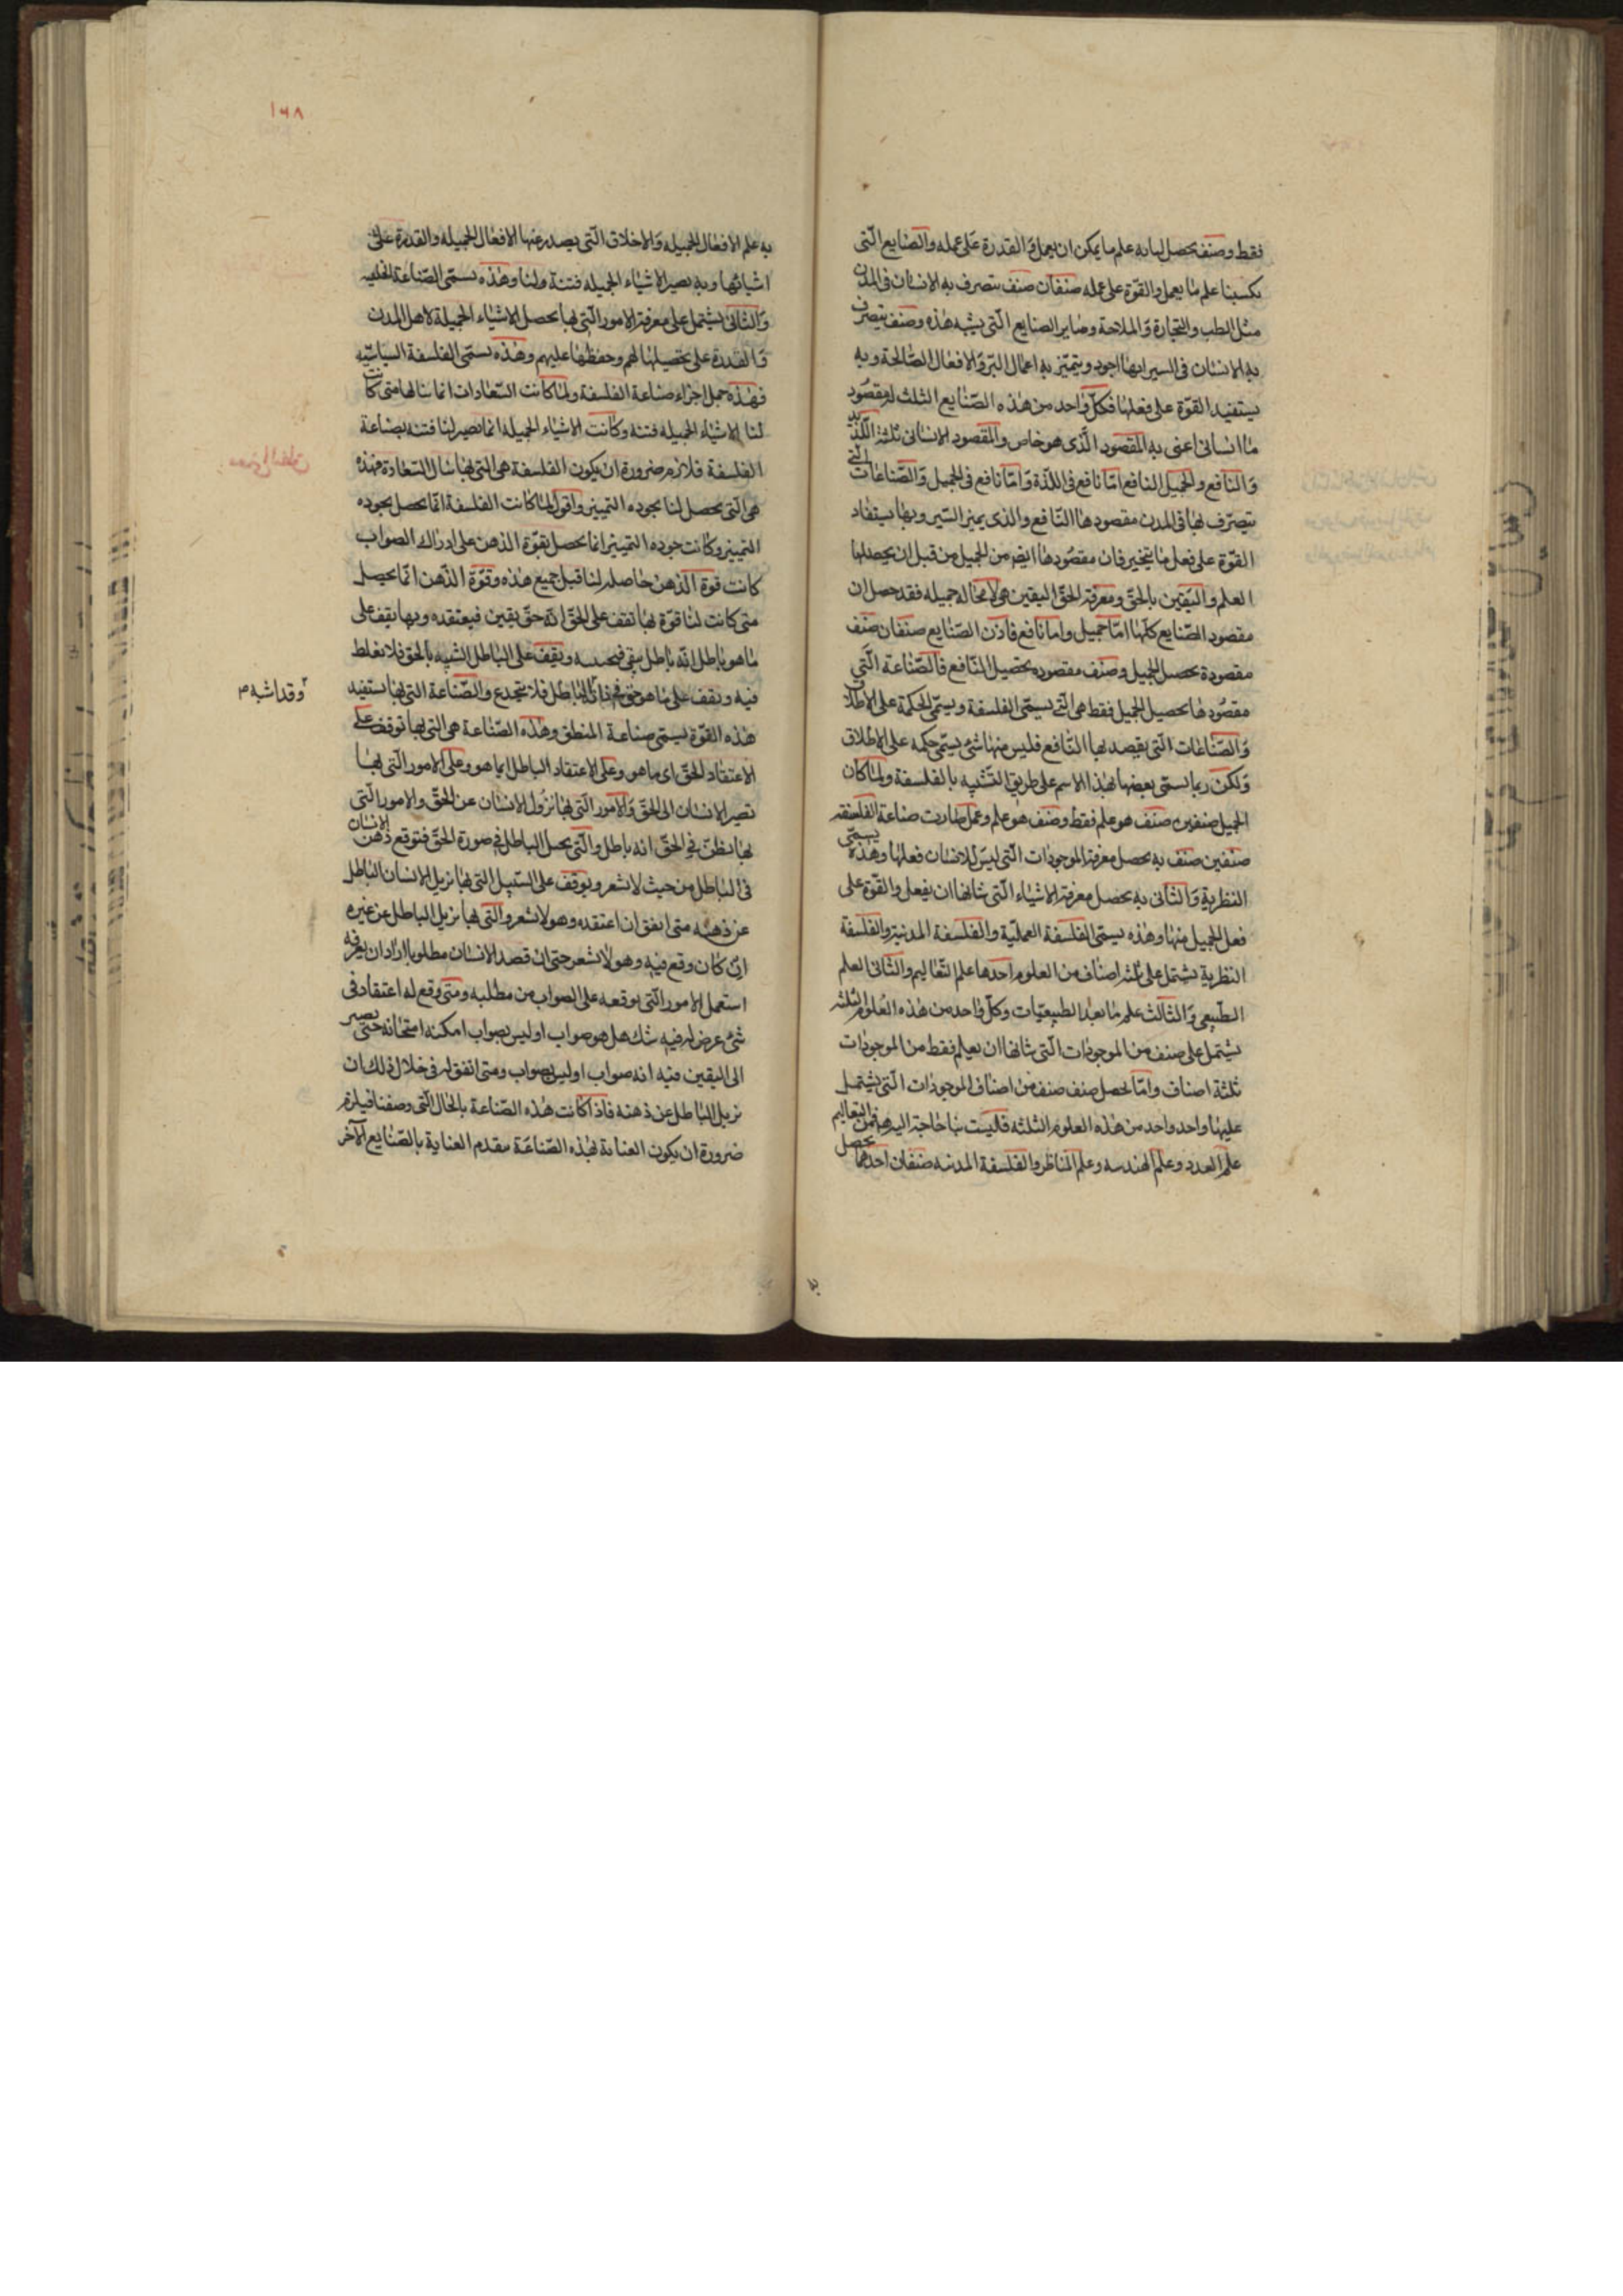 فقط وصنف يحصل لنا به علم ما يمكن ان يعمل والقدرة على عمله والصنايع التى
تكسبنا علم ما يعمل والقوّة على عمله صنفان صنف يتصرف به الانسان فى المدن
مثل الطب والتجارة والملاحة وساير الصنايع التى يشبه هذه وصنف يتصرف
به الانسان فى السير ايها اجود ويتميّز به اعمال البرّ والافعال الصّالحة وبه
يستفيد القوّة على فعلها فكلّ واحد من هذه الصّنايع الثلث له مقصود
ما انسانى اعنى به المقصود الّذى هو خاص والمقصود الانسانى ثلثة اللّذيذ
والنافع والجميل النافع امّا نافع فى اللذّة وامّا نافع فى الجميل والصّناعات الّتى
يتصرّف بها فى المدن مقصودها النّافع والذى يميز السّير وبها يستفاد
القوّة على فعل ما يتخير فان مقصودها ايضا من الجميل من قبل ان يحصلها
العلم واليقين بالحقّ ومعرفة الحقّ اليقين هى لا محالة جميله فقد حصل ان
مقصود الصّنايع كلّها امّا جميل وامّا نافع فاذن الصّنايع صنفان صنف
مقصوده تحصيل الجميل وصنف مقصوده تحصيل النّافع فالصّناعة الّتى
مقصودها تحصيل الجميل فقط هى الّتى يسمّى الفلسفة ويسمّى الحكمة على الاطلاق
والصّناعات الّتى يقصد بها النّافع فليس منها شئ يسمّى حكمه على الاطلاق
ولكن ربما يسمّى بعضها بهذا الاسم على طريق التّشبيه بالفلسفة ولما كان
الجميل صنفين صنف هو علم فقط وصنف هو علم وعمل صارت صناعة الفلسفة
صنفين صنف به يحصل معرفة الموجودات الّتى ليس للانسان فعلها وهذه يسمّى
النظرية والثّانى به يحصل معرفة الاشياء الّتى شانها ان يفعل والقوّة على
فعل الجميل منها وهذه يسمّى الفلسفة العمليّة والفلسفة المدنية والفلسفة
النظرية يشتمل على ثلثة اصناف من العلوم احدها علم التّعاليم والثّانى العلم
الطّبيعى والثّالث علم ما بعد الطبيعيّات وكلّ واحد من هذه العلوم الثلثة
يشتمل على صنف من الموجودات الّتى شانها ان يعلم فقط من الموجودات
ثلثة اصناف وامّا يحصل صنف صنف من اصناف الموجودات الّتى يشتمل
عليها واحد واحد من هذه العلوم الثلثه فليست بنا حاجة اليه هنا فمن التعاليم
علم العدد وعلم الهندسه وعلم المناظر والفلسفة المدنيه صنفان احدهما يحصل
١٦٨
به علم الافعال الجميله والاخلاق الّتى يصدر عنها الافعال الجميله والقدرة على
اشيائها وبه يصير الاشياء الجميله قنية لنا وهذه يسمّى الصّناعة الخلقيه
والثّانى يشتمل على معرفة الامور الّتى بها يحصل الاشياء الجميلة لاهل المدن
والقدرة على تحصيلها لهم وحفظها عليهم وهذه يسمّى الفلسفة السياسيّة
فهذه جمل اجزاء صناعة الفلسفة ولما كانت السّعادات انما ننالها متى كانت
لنا الاشياء الجميله قنيه وكانت الاشياء الجميله انما تصير لنا قنيه بصناعة
الفلسفة فلازم ضرورة ان يكون الفلسفة هى التى بها ننال السّعادة فهذه
هى الّتى يحصل لنا بجوده التمييز واقول لما كانت الفلسفة انّما يحصل بجوده
التمييز وكانت جوده التمييز انما يحصل بقوّة الذهن على ادراك الصواب
كانت قوة الذّهن حاصله لنا قبل جميع هذه وقوّة الذّهن انّما يحصل
متى كانت لنا قوّة بها نقف على الحقّ انّه حقّ يقين فيعتقده وبها يقف على
ما هو باطل انّه باطل بيقين فيجتنبه ويقف على الباطل الشبيه بالحق فلا نغلط
فيه ونقف على ما هو حق فى ذاته بالباطل فلا ينخدع والصّناعة التى بها يستفيد
وقد اشبه م
هذه القوّة يسمّى صناعة المنطق وهذه الصّناعة هى التى بها توقف على
الاعتقاد الحقّ اى ما هو وعلى الاعتقاد الباطل ايما هو وعلى الامور الّتى بها
تصير الانسان الى الحقّ والامور الّتى بها يزول الانسان عن الحقّ والامور الّتى
بها يظنّ فى الحقّ انه باطل والّتى يحيل الباطل فى صورة الحقّ فتوقع ذهن الانسان
فى الباطل من حيث لا يشعر ويوقف على السّبيل التى بها يزيل الانسان الباطل
عن ذهنه متى اتفق ان اعتقده وهو لا يشعر والّتى بها يزيل الباطل عن غيره
ان كان وقع فيه وهو لا يشعر حتى ان قصد الانسان مطلوبا اراد ان يعرفه
استعمل الامور الّتى يوقعه على الصواب من مطلبه ومتى وقع له اعتقاد فى
شئ عرض له فيه شك هل هو صواب او ليس بصواب امكنه امتحانه حتى يصير
الى اليقين فيه انه صواب او ليس بصواب ومتى اتفق له فى خلال ذلك ان
يزيل الباطل عن ذهنه فاذا كانت هذه الصّناعة بالحال الّتى وصفنا فيلزم
ضرورة ان يكون العناية بهذه الصّناعة مقدم العناية بالصّنايع الآخر